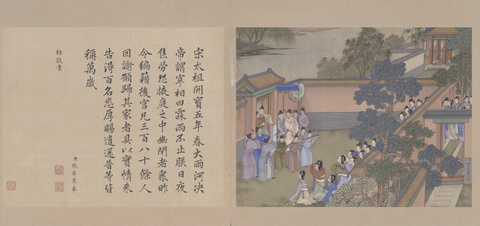 宋太祖開寶五年春大雨河決
帝謂宰相曰霖雨不止朕日夜
焦勞恐掖庭之中幽閉者眾昨
令編籍後宮凡三百八十餘人
因諭願歸其家者具以實情來
告得百名悉厚賜遣還普等皆
稱萬歲
奉
勅敬書